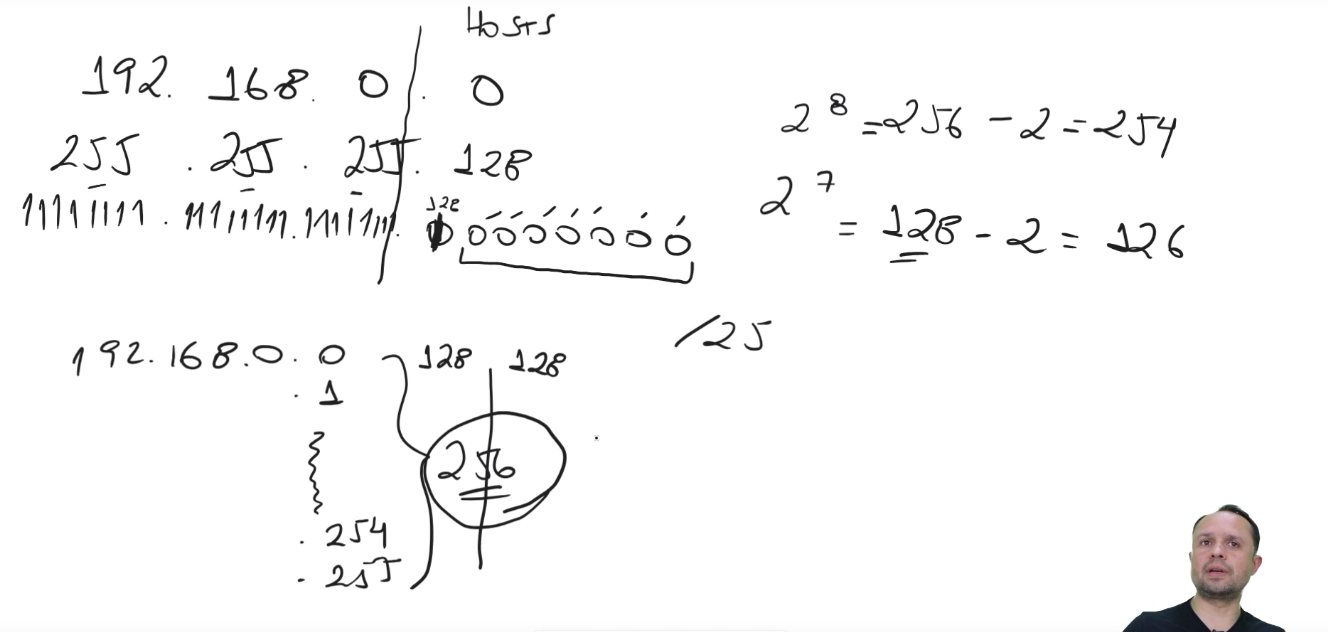 Hosts
192. 168. 0. 0
255 . 255 . 255. 128
11111111 . 11111111. 11111111. 10000000
128
2^8 = 256 - 2 = 254
2^7 = 128 - 2 = 126
/25
192.168.0. 0
. 1
. 254
. 255
128 | 128
256